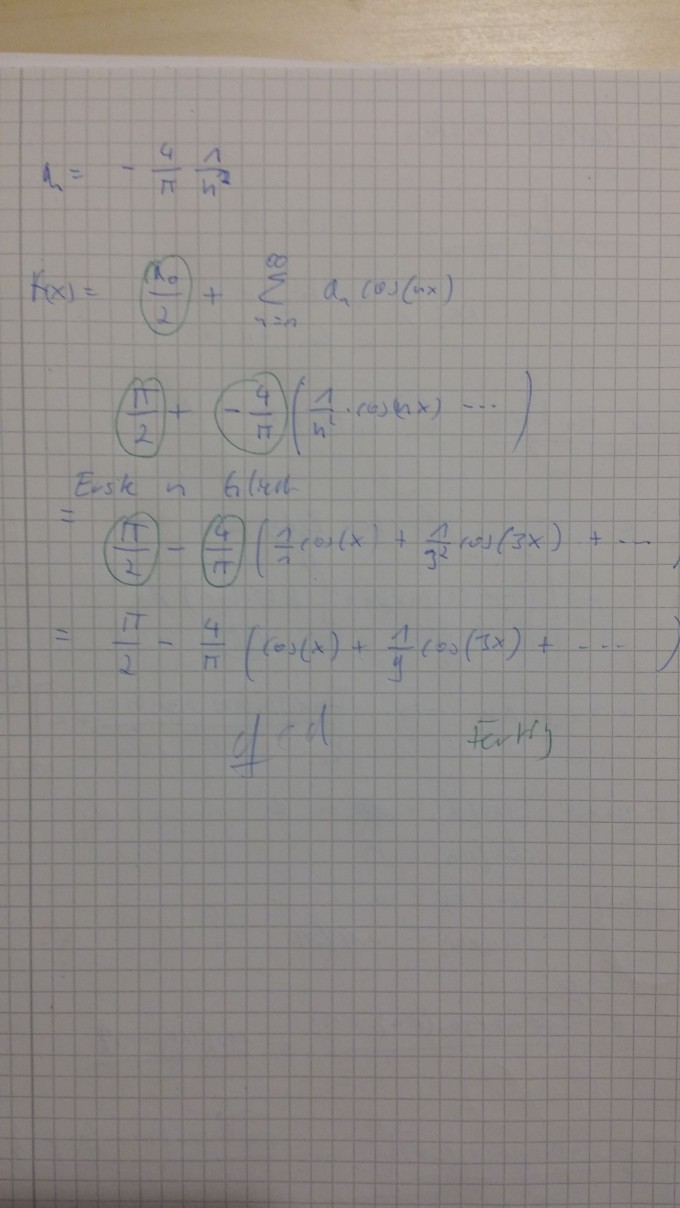 aₙ = - 4/π 1/n²
f(x) = a₀/2 + ∞ Σ n=n aₙ cos(nx)
π/2 + - 4/π ( 1/n² · cos(nx) --- )
Erste n
= π/2 - 4/π ( 1/1 cos(x) + 1/3² cos(3x) + ---
= π/2 - 4/π ( cos(x) + 1/9 cos(3x) + ---- )
Fertig